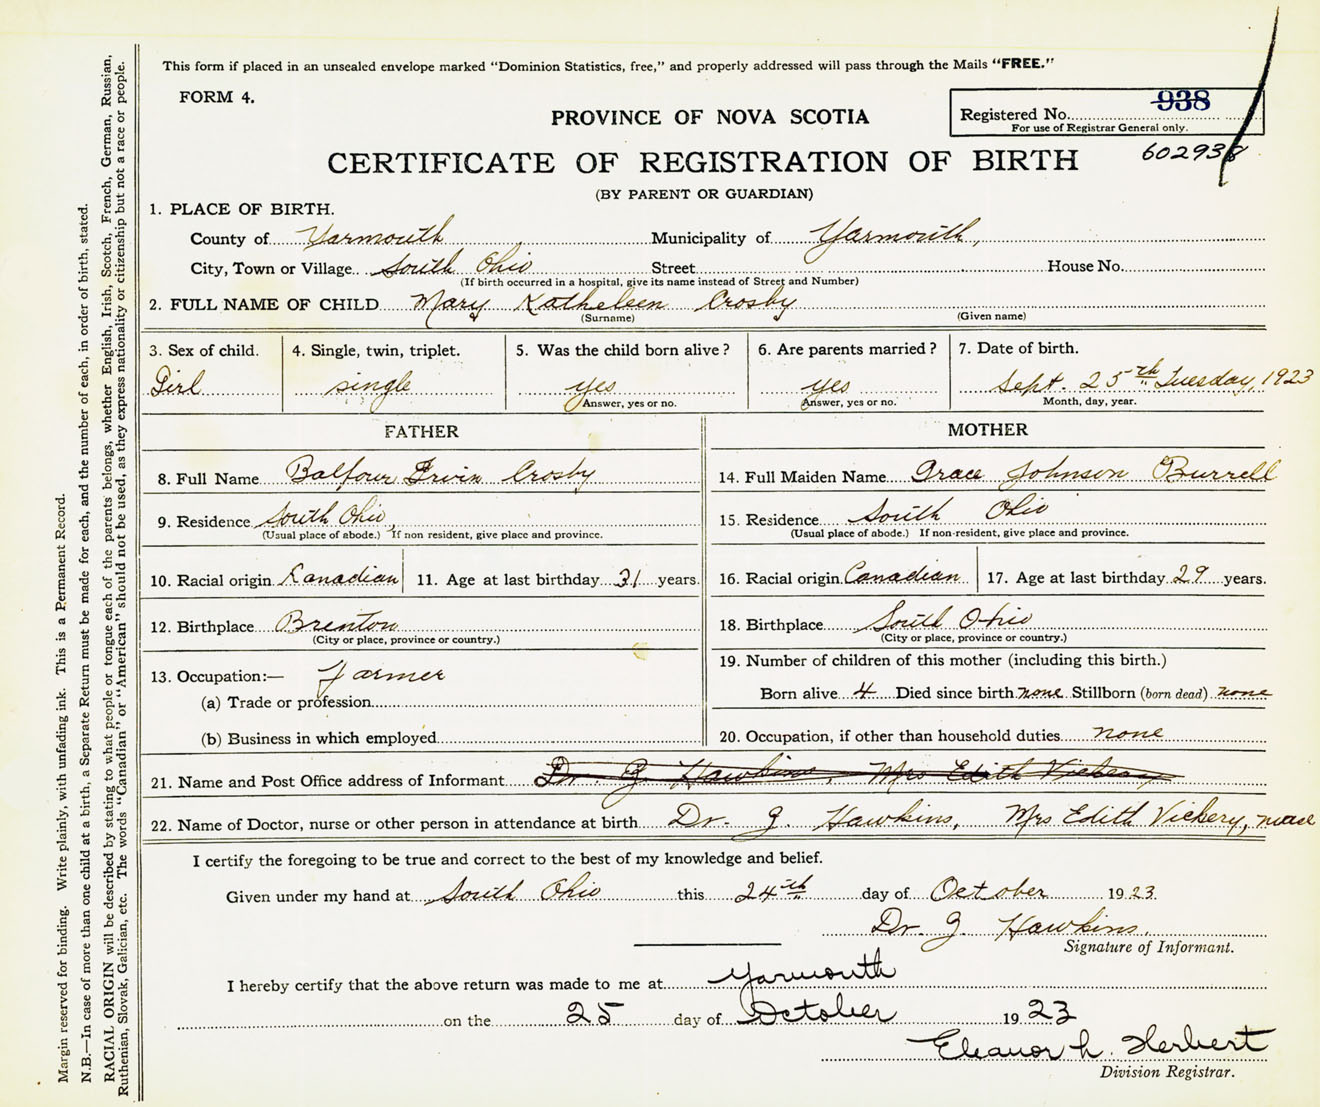 This form if placed in an unsealed envelope marked "Dominion Statistics, free," and properly addressed will pass through the Mails "FREE."
FORM 4.
PROVINCE OF NOVA SCOTIA
Registered No. 938
For use of Registrar General only.
CERTIFICATE OF REGISTRATION OF BIRTH
602938
(BY PARENT OR GUARDIAN)
1. PLACE OF BIRTH.
County of Yarmouth Municipality of Yarmouth,
City, Town or Village South Ohio Street House No.
(If birth occurred in a hospital, give its name instead of Street and Number)
2. FULL NAME OF CHILD Mary Katheleen Crosby
(Surname) (Given name)
3. Sex of child. 4. Single, twin, triplet. 5. Was the child born alive? 6. Are parents married? 7. Date of birth.
Girl single yes yes Sept. 25th Tuesday, 1923
Answer, yes or no. Answer, yes or no. Month, day, year.
FATHER MOTHER
8. Full Name Balfour Irvin Crosby 14. Full Maiden Name Grace Johnson Burrell
9. Residence South Ohio, 15. Residence South Ohio
(Usual place of abode.) If non resident, give place and province. (Usual place of abode.) If non-resident, give place and province.
10. Racial origin Canadian 11. Age at last birthday 31 years. 16. Racial origin Canadian 17. Age at last birthday 29 years.
12. Birthplace Brenton 18. Birthplace South Ohio
(City or place, province or country.) (City or place, province or country.)
13. Occupation:— Farmer 19. Number of children of this mother (including this birth.)
(a) Trade or profession Born alive 4 Died since birth none Stillborn (born dead) none
(b) Business in which employed 20. Occupation, if other than household duties none
21. Name and Post Office address of Informant Dr. G Hawkins, Mrs Edith Vickery
22. Name of Doctor, nurse or other person in attendance at birth Dr. G. Hawkins, Mrs Edith Vickery, nurse
I certify the foregoing to be true and correct to the best of my knowledge and belief.
Given under my hand at South Ohio this 24th day of October 1923.
Dr. G Hawkins.
Signature of Informant.
I hereby certify that the above return was made to me at Yarmouth
on the 25 day of October 1923
Eleanor L. Herbert
Division Registrar.
Margin reserved for binding. Write plainly, with unfading ink. This is a Permanent Record.
N.B.—In case of more than one child at a birth, a Separate Return must be made for each, and the number of each, in order of birth, stated.
RACIAL ORIGIN will be described by stating to what people or tongue each of the parents belongs, whether English, Irish, Scotch, French, German, Russian,
Ruthenian, Slovak, Galician, etc. The words "Canadian" or "American" should not be used, as they express nationality or citizenship but not a race or people.